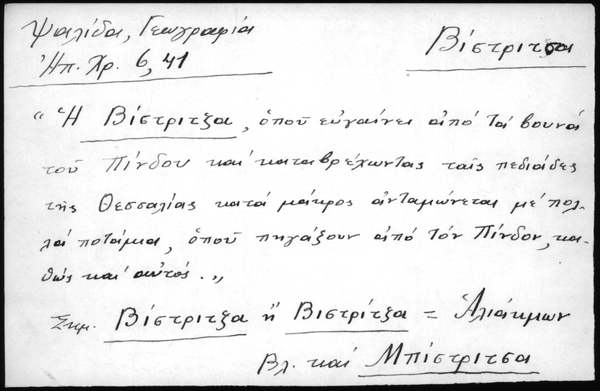 Ψαλίδα, Γεωγραφία
Ἠπ. Χρ. 6, 41
Βίστριτσα
"Ἡ Βίστριτζα, ὁποῦ εὐγαίνει ἀπό τά βουνά
τοῦ Πίνδου καί καταβρέχωντας ταῖς πεδιάδες
τῆς Θεσσαλίας κατά μάκρος ἀνταμώνεται μέ πολ-
λά ποτάμια, ὁποῦ πηγάζουν ἀπό τόν Πίνδον, κα-
θώς καί αὐτός."
Σημ. Βίστριτζα ἤ Βιστρίτζα = Ἁλιάκμων
Βλ. καί Μπίστριτσα